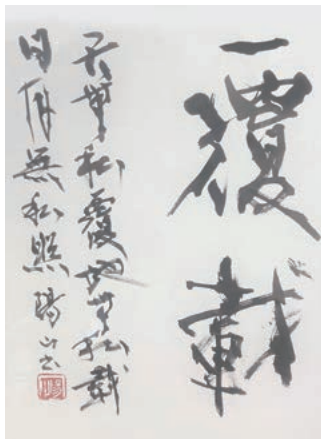 覆載
天無私覆地無私載
日月無私照 陽山書